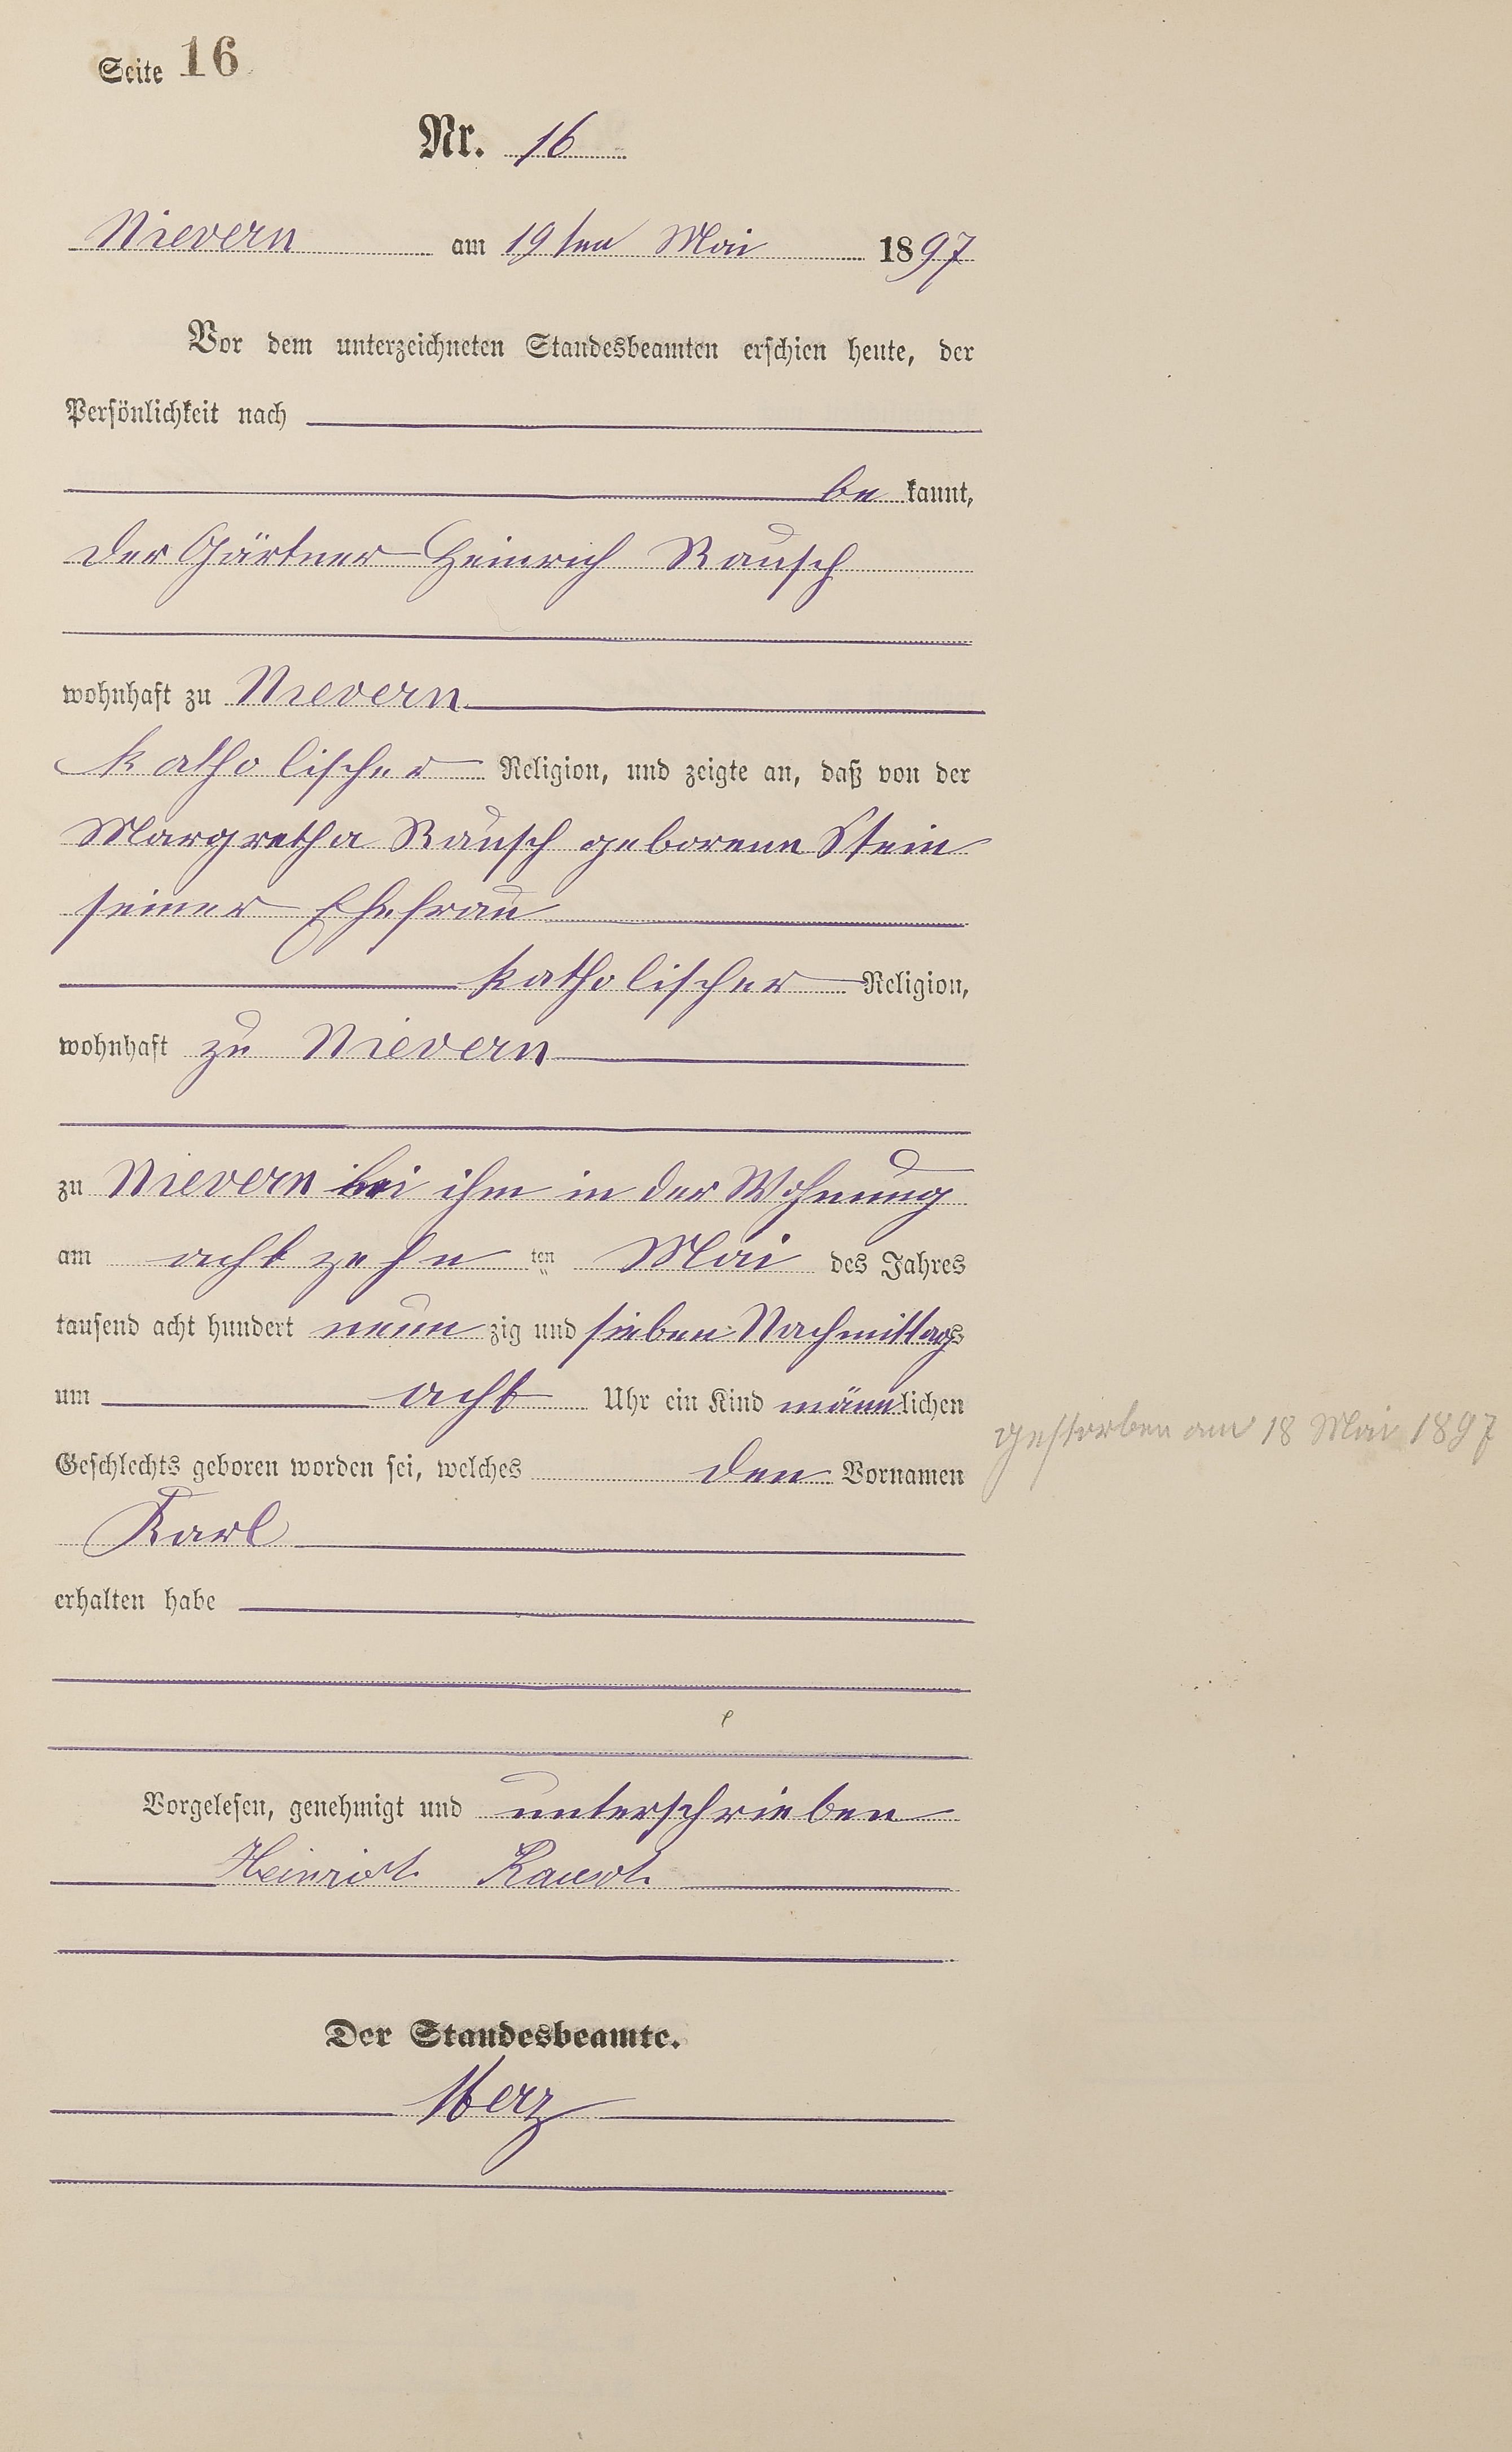 Seite 16
Nr. 16
Nievern am 19ten Mai 1897
Vor dem unterzeichneten Standesbeamten erschien heute, der
Persönlichkeit nach
be kannt,
der Gärtner Heinrich Rausch
wohnhaft zu Nievern
katholischer Religion, und zeigte an, daß von der
Margretha Rausch geborene Stein
seiner Ehefrau
katholischer Religion,
wohnhaft zu Nievern
zu Nievern bei ihm in der Wohnung
am achtzehn ten Mai des Jahres
tausend acht hundert neun zig und sieben Nachmittags
um acht Uhr ein Kind männlichen
Geschlechts geboren worden sei, welches den Vornamen
gestorben am 18 Mai 1897
Karl
erhalten habe
Vorgelesen, genehmigt und unterschrieben
Heinrich Rausch
Der Standesbeamte.